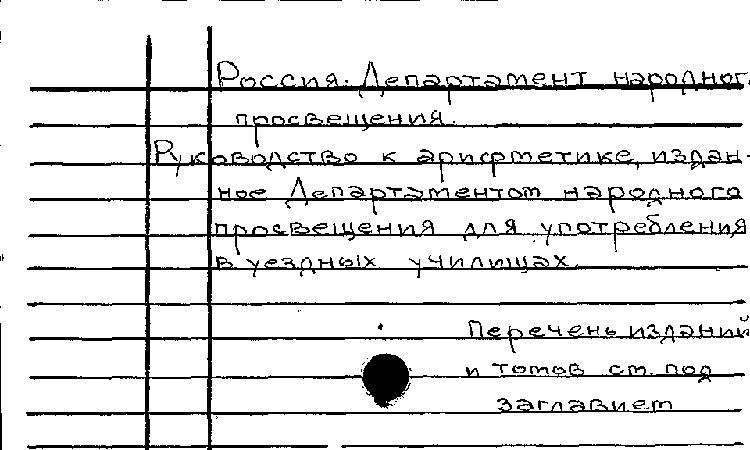 Россия. Департамент народног.
просвещения.
Руководство к арифметике, издан-
ное Департаментом народного
просвещения для употребления
в уездных училищах.
Перечень изданий
и томов см. под
заглавием